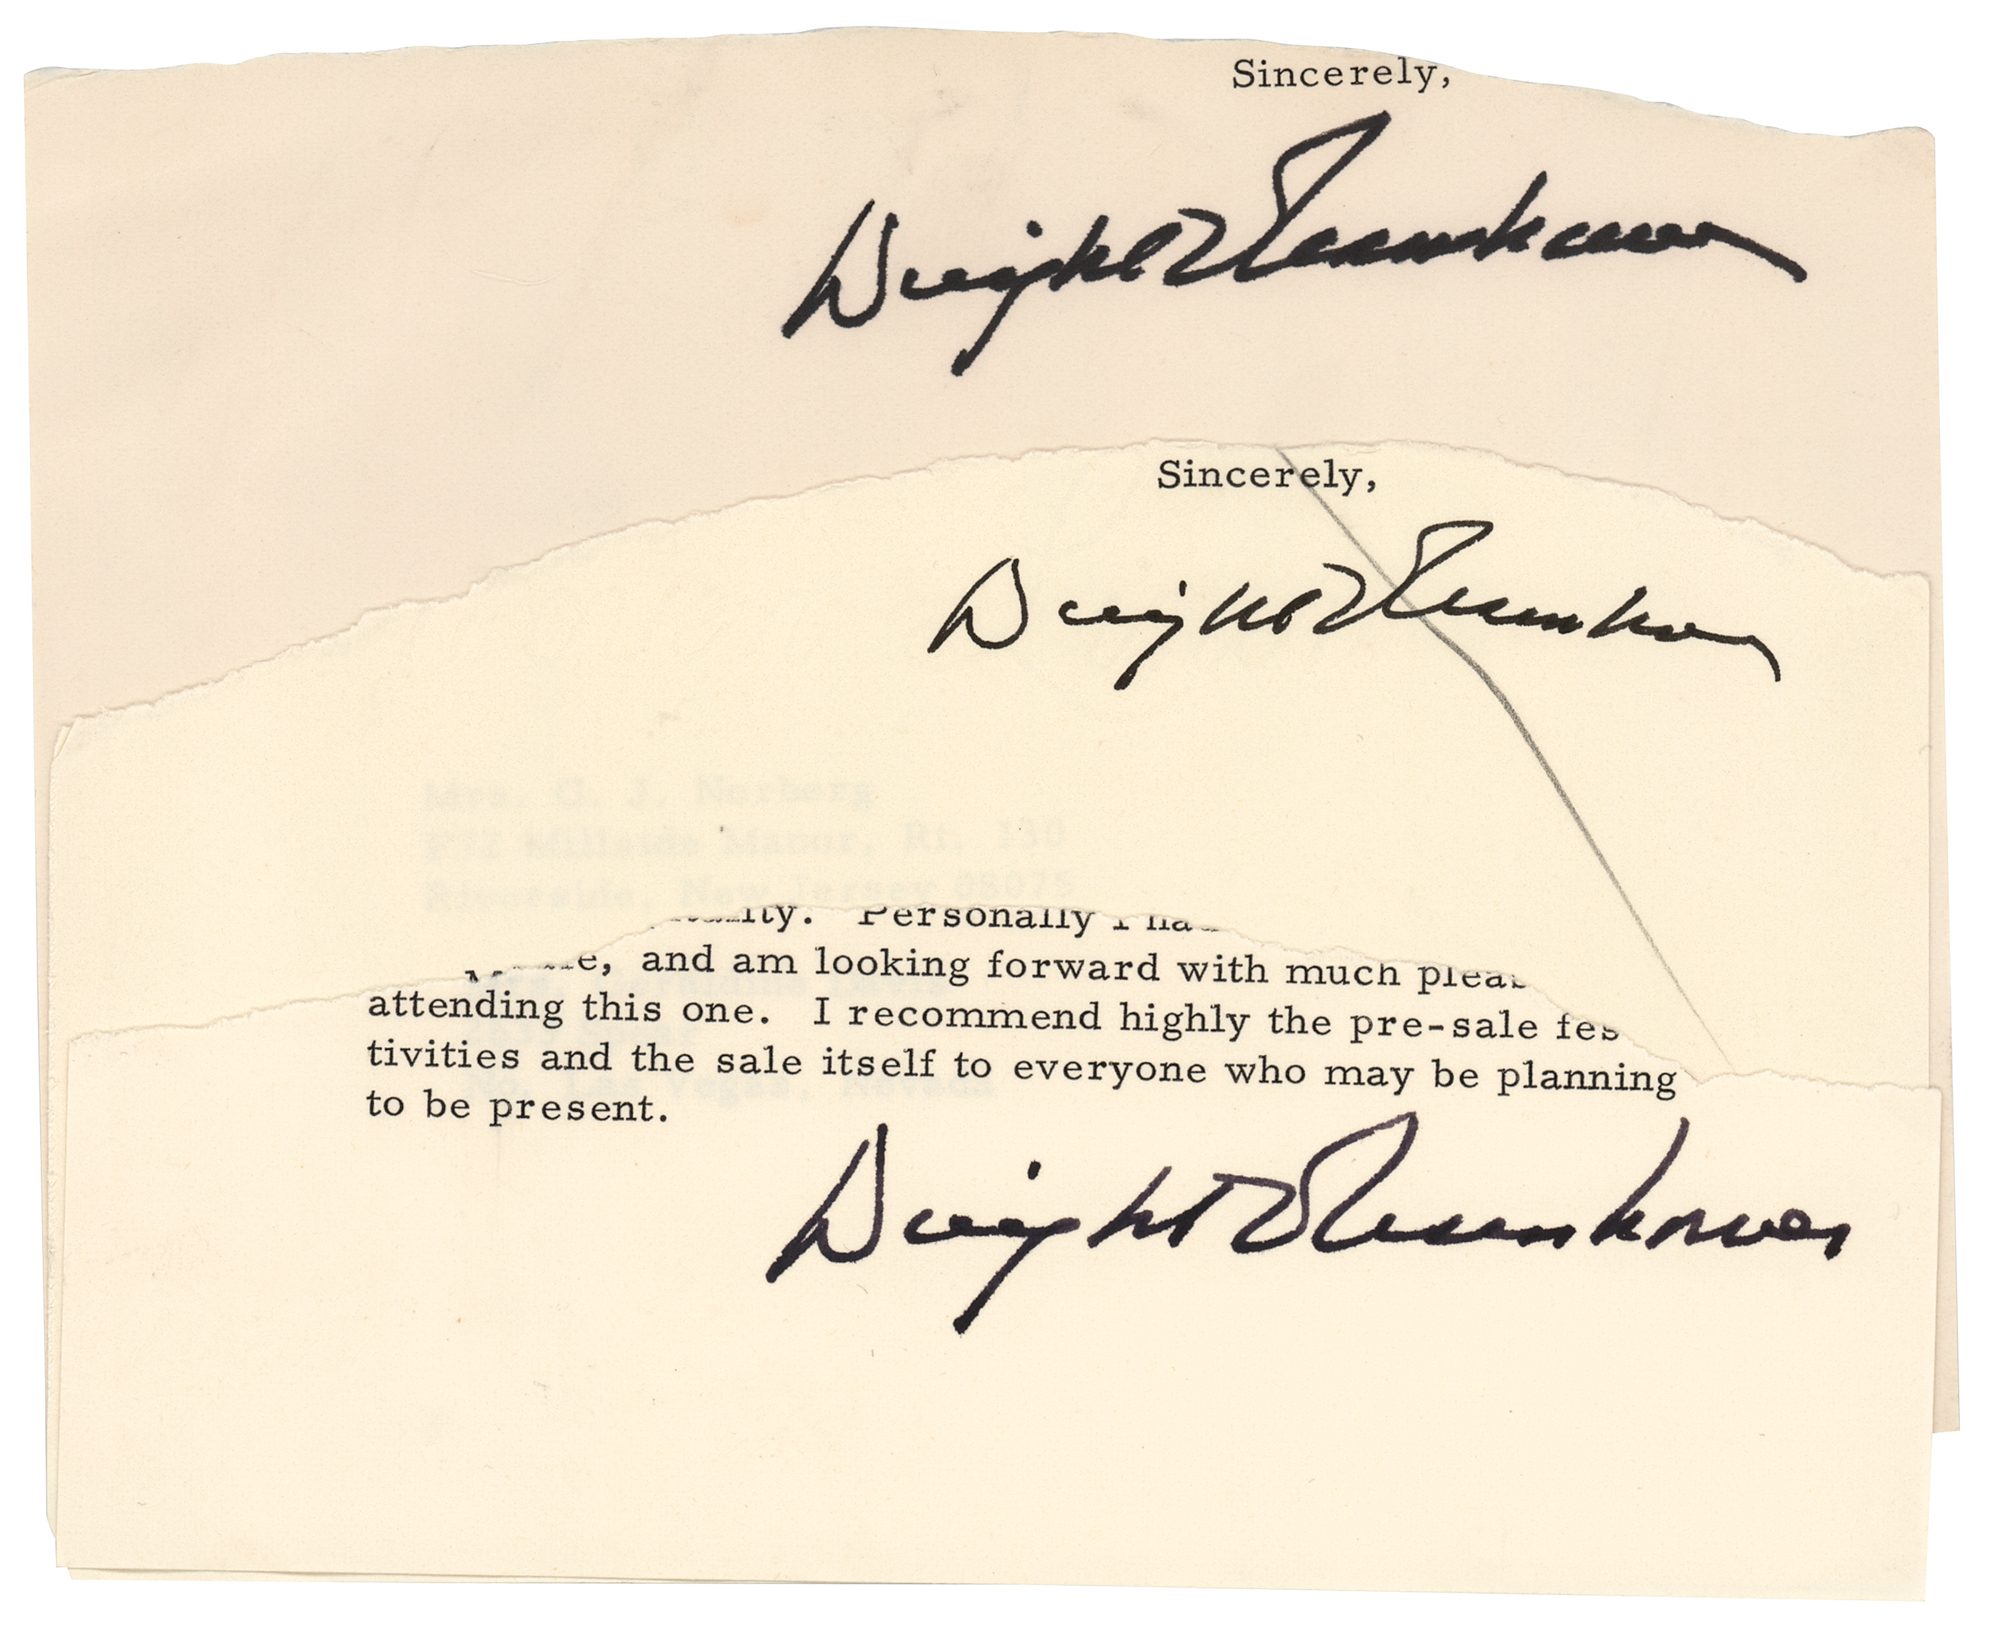 Sincerely,
Dwight D Eisenhower
Sincerely,
Dwight D Eisenhower
Mrs. G. J. Norberg
Millside Manor, Rt. 130
Riverside, New Jersey 08075
Personally I had
and am looking forward with much
attending this one. I recommend highly the pre-sale fes
tivities and the sale itself to everyone who may be planning
to be present.
Las Vegas, Nevada
Dwight D Eisenhower